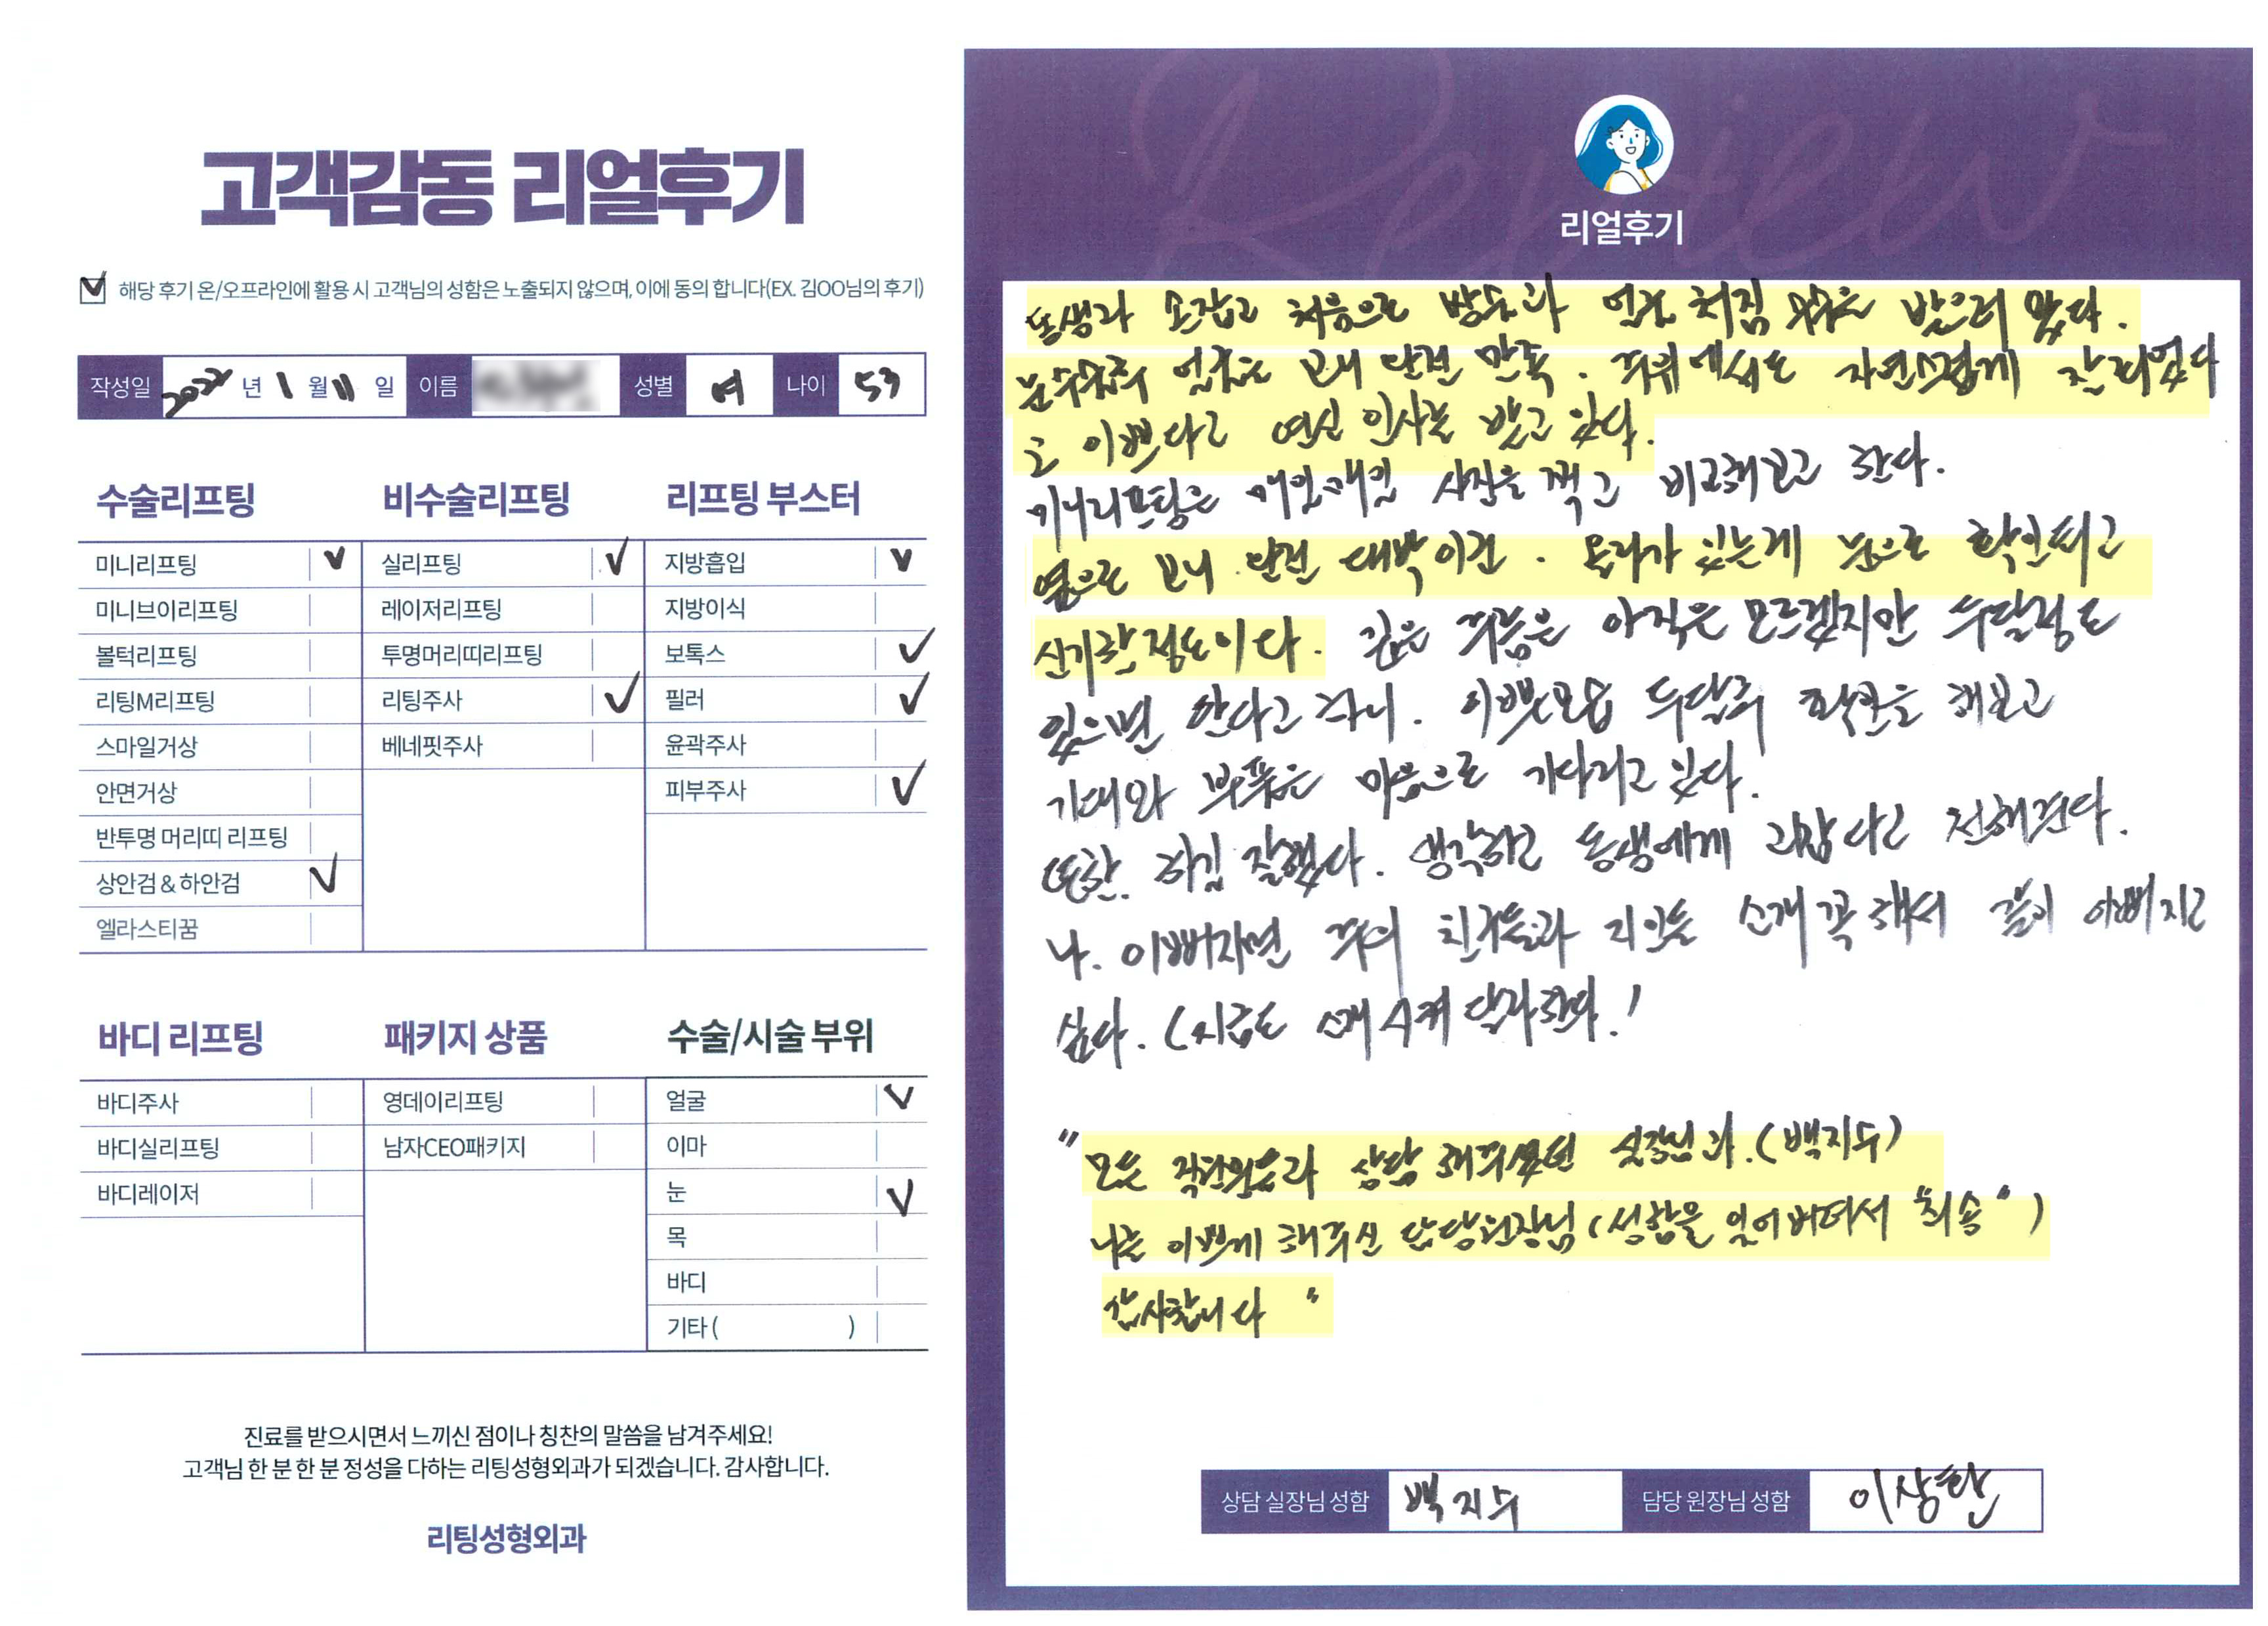 고객감동 리얼후기
해당 후기 온/오프라인에 활용 시 고객님의 성함은 노출되지 않으며, 이에 동의 합니다(EX. 김OO님의 후기)
작성일 2022 년 1 월 11 일 이름 성별 여 나이 53
수술리프팅
미니리프팅
미니브이리프팅
볼턱리프팅
리팅M리프팅
스마일거상
안면거상
반투명 머리띠 리프팅
상안검 & 하안검
엘라스티꿈
비수술리프팅
실리프팅
레이저리프팅
투명머리띠리프팅
리팅주사
베네핏주사
리프팅 부스터
지방흡입
지방이식
보톡스
필러
윤곽주사
피부주사
바디 리프팅
바디주사
바디실리프팅
바디레이저
패키지 상품
영데이리프팅
남자CEO패키지
수술/시술 부위
얼굴
이마
눈
목
바디
기타 ( )
진료를 받으시면서 느끼신 점이나 칭찬의 말씀을 남겨주세요!
고객님 한 분 한 분 정성을 다하는 리팅성형외과가 되겠습니다. 감사합니다.
리팅성형외과
Review
리얼후기
동생과 손잡고 처음으로 얼굴 처짐 받으러 왔다.
눈수술후 얼굴을 보니 단연 만족. 주위에서도 자연스럽게 잘되었다
고 이쁘다고 연신 인사를 받고 있다.
미니리프팅은 매일매일 사진을 찍고 비교해보고 한다.
옆으로 보니 단연 대박이건. 효과가 있는게 눈으로 확인되고
신기할정도이다. 깊은 주름은 아직은 모르겠지만 두달정도
있으면 한다고 하니. 이쁜모습 두달후 확인을 해보고
기대와 부푼 마음으로 기다리고 있다.
또한. 하길 잘했다. 생각하고 동생에게 고맙다고 전해준다.
나. 이뻐지면 주위 친구들과 지인들 소개 꼭 해서 같이 이뻐지고
싶다. (지금도 소개시켜 달라한다.!
" 모든 직원분들과 상담 해주셨던 실장님과.(백지수)
나를 이쁘게 해주신 담당원장님 (성함을 잊어버려서 "죄송")
감사합니다 "
상담 실장님 성함 백지수 담당 원장님 성함 이상환